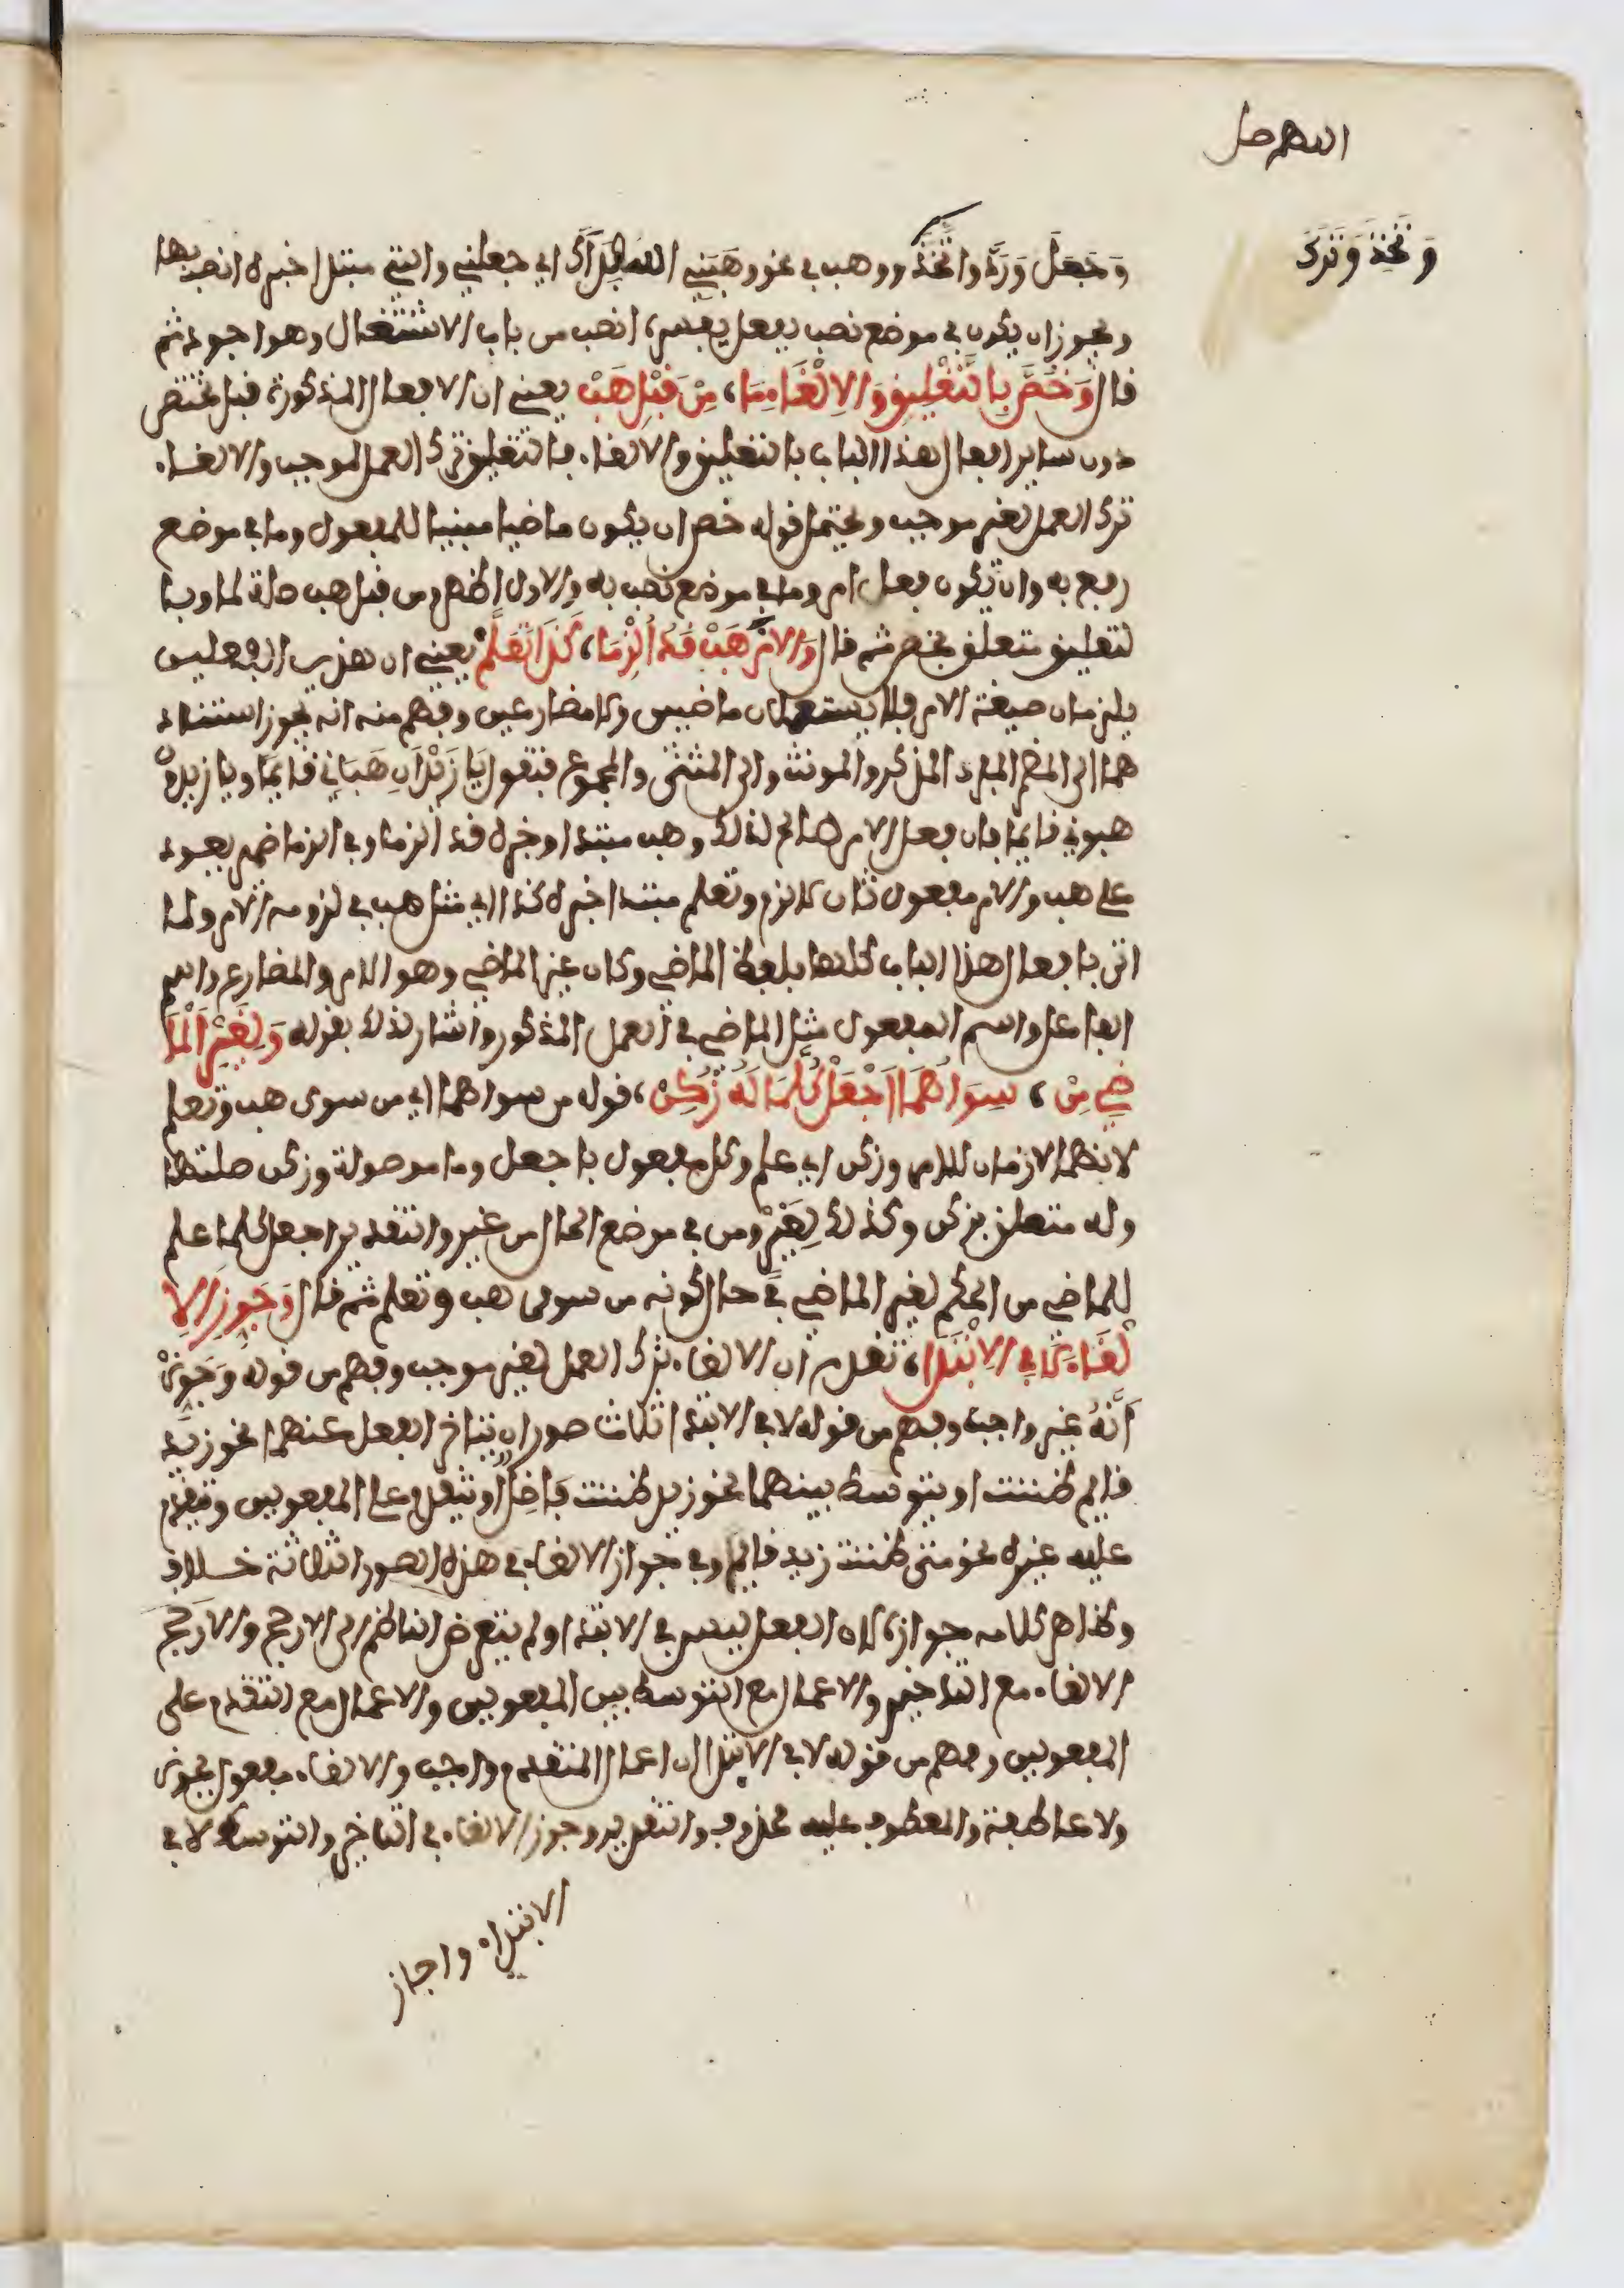 اللهم صل
وَتَخِذَ وَتَرَكَ
وَجَعَلَ وَرَدَّ واتَّخَذَ ووهب في نحو وهَبَنِي الله فِدَاكَ اي جعلني والتي مبتدا خبره انصب بها
ويجوز ان يكون في موضع نصب بفعل يفسره انصب من باب الاشتغال وهو اجود ثم
قال وَخُصَّ بِالتَّعْلِيقِ وَالاِلْغَا مِمَا، مِنْ قَبْلِ هَبْ يعني ان الافعال المذكورة قبل تختص
دون ساير افعال هذا الباب بالتعليق والالغاء فالتعليق ترك العمل لموجب والالغاء
ترك العمل لغير موجب ويحتمل قوله خص ان يكون ماضيا مبنيا للمفعول وما في موضع
رفع به وان يكون فعل امر وما في موضع نصب به والاول اظهر ومن قبل هب صلة لما وبا
لتعليق متعلق بخص ثم قال وَالامْرَ هَبْ قَدُ اُلْزِمَا، كَذَا تَعَلَّمْ يعني ان هذين الفعلين
يلزمان صيغة الامر فلا يستعملان ماضيين ولا مضارعين وفهم منه انه يجوز اسناد
هما الى الضمير المفرد المذكر والمونث والى المثنى والمجموع فتقول يَا زَيْدَانِ هَبَانِي قايمًا ويا زيدون
هبوني قايمًا فان فعل الامر صالح لذلك وهب مبتدا وخبره قد الزما وفي الزما ضمير يعود
على هب والامر مفعول ثان لالزم وتعلم مبتدا خبره كذا اي مثل هب في لزومه الامر ولما
اتى بافعال هذا الباب كلها بلفظ الماضي وكان غير الماضي وهو الامر والمضارع واسم
الفاعل واسم المفعول مثل الماضي في العمل المذكور اشار لذلك بقوله وَلِغَيْرِ الْمَا
ضِي مِنْ، سِوَاهُمَا اَجْعَلْ كُلَّمَا لَهُ زُكِنْ، قوله من سواهما اي من سوى هب وتعلم
لانهما لازمان للامر وزكن اي علم وكل مفعول باجعل وما موصولة وزكن صلتها
وله متعلق بزكن وكذلك لِغَيْرِ ومن في موضع الحال من غير والتقدير اجعل كلما علم
للماضي من الحكم لغير الماضي في حال كونه من سوى هب وتعلم ثم قال وَجَوِّزِ الاِ
لْغَاءَ لَا فِي الاِبْتِدَا، تقدم ان الالغاء ترك العمل لغير موجب وفهم من قوله وَجَوِّزْ
اَنَّهُ غير واجب وفهم من قوله لا في الابتدا ثلاث صور ان يتاخر الفعل عنهما نحو زيد
قايم ظننت او يتوسط بينهما نحو زيد ظننت فَاضِلٌ او يتقدم على المفعولين ويتقدم
عليه غيره نحو متى ظننت زيد قايم وفي جواز الالغاء في هذه الصور الثلاثة خلاف
وظاهر كلامه جوازه لان الفعل ليس في الابتدا ولم يتعرض الناظم الى الارجح والارجح
الالغاء مع التاخير والاعمال مع التوسط بين المفعولين والاعمال مع التقدم على
المفعولين وفهم من قوله لا في الابتدا ان اعمال المتقدم واجب والالغاء مفعول بجوز
ولا عاطفة والمعطوف عليه محذوف والتقدير وجوز الالغاء في التاخر والتوسط لا في
الابتداء واجاز